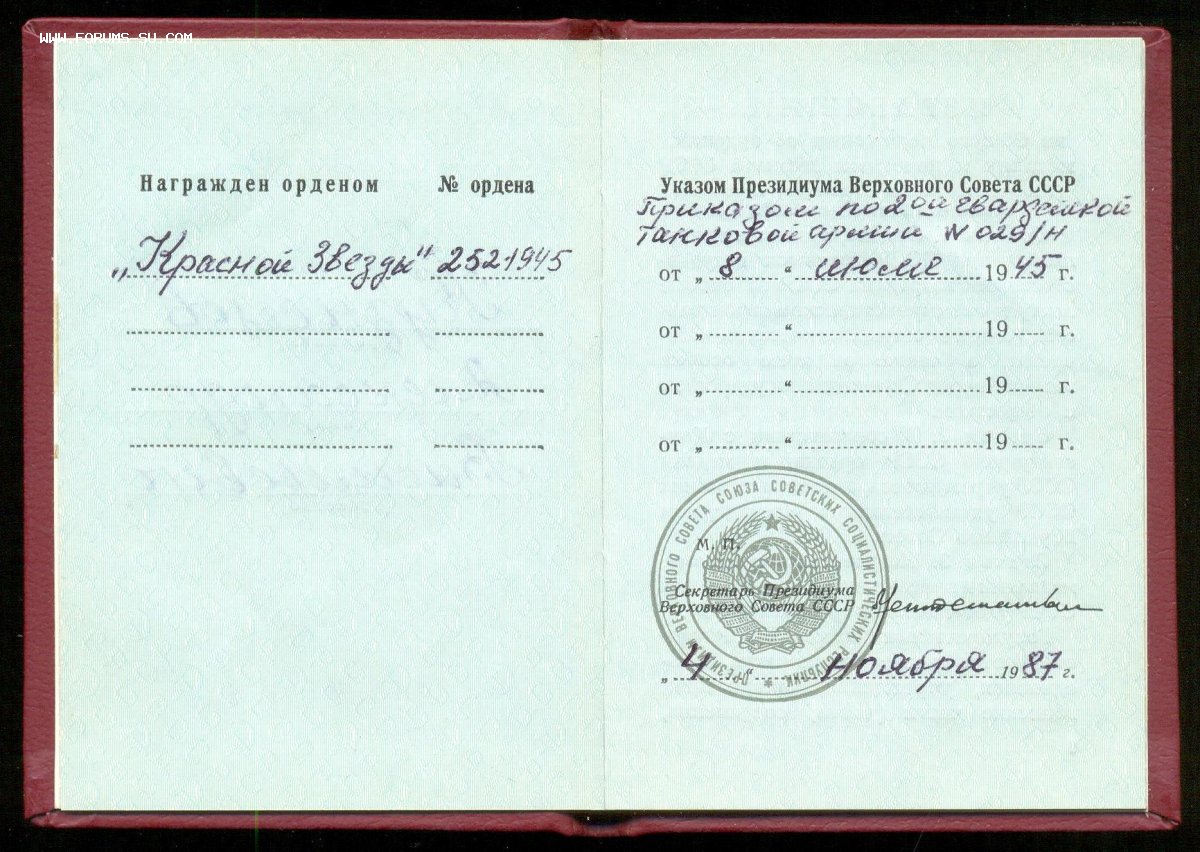 www.forums-su.com
Награжден орденом № ордена
„Красной Звезды" 2521945
Указом Президиума Верховного Совета СССР
Приказом по 2ой гвардейской
танковой армии N 029/н
от „ 8 “ июля 1945 г.
от „ “ 19 г.
от „ “ 19 г.
от „ “ 19 г.
ПРЕЗИДИУМ ВЕРХОВНОГО СОВЕТА СОЮЗА СОВЕТСКИХ СОЦИАЛИСТИЧЕСКИХ РЕСПУБЛИК *
М. П.
Секретарь Президиума
Верховного Совета СССР
„ 4 “ ноября 1987 г.